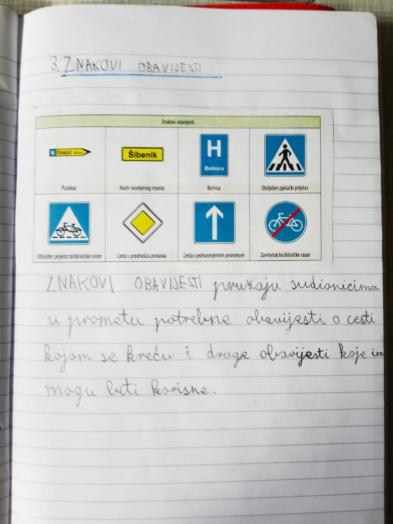 3. ZNAKOVI OBAVIJESTI
Znakovi obavijesti
Šibenik
H
Bolnica
Putokaz
Naziv naseljenog mjesta
Bolnica
Obilježen pješački prijelaz
Obilježen prijelaz biciklističke staze
Cesta s prednošću prolaska
Cesta s jednosmjernim prometom
Završetak biciklističke staze
ZNAKOVI OBAVIJESTI pružaju sudionicima
u prometu potrebne obavijesti o cesti
kojom se kreću i druge obavijesti koje im
mogu biti korisne.